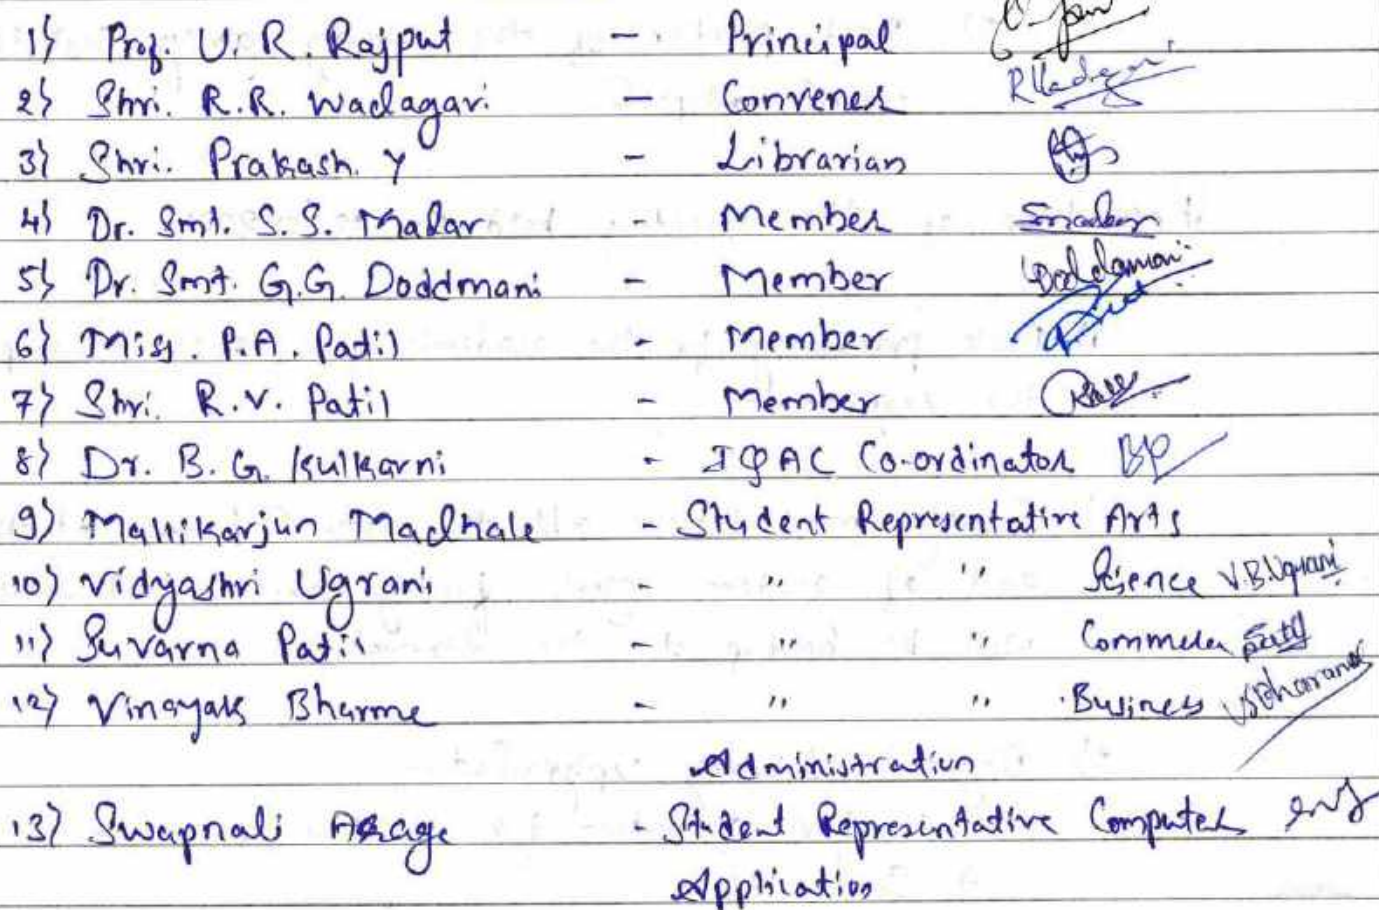 1) Prof. U. R. Rajput - Principal
2) Shri. R.R. Wadagavi - Convener R Wadagavi
3) Shri. Prakash. Y - Librarian
4) Dr. Smt. S. S. Madar - Member
5) Dr. Smt. G.G. Doddmani - Member Doddamani
6) Miss. P.A. Patil - Member
7) Shri. R.V. Patil - Member
8) Dr. B. G. Kulkarni - IQAC Co-ordinator
9) Mallikarjun Madhale - Student Representative Arts
10) Vidyashri Ugrani - " " Science V.B.Ugrani
11) Suvarna Patil - " " Commerce Patil
12) Vinayak Bharme - " " Business
Administration
13) Swapnali - Student Representative Computer
Application